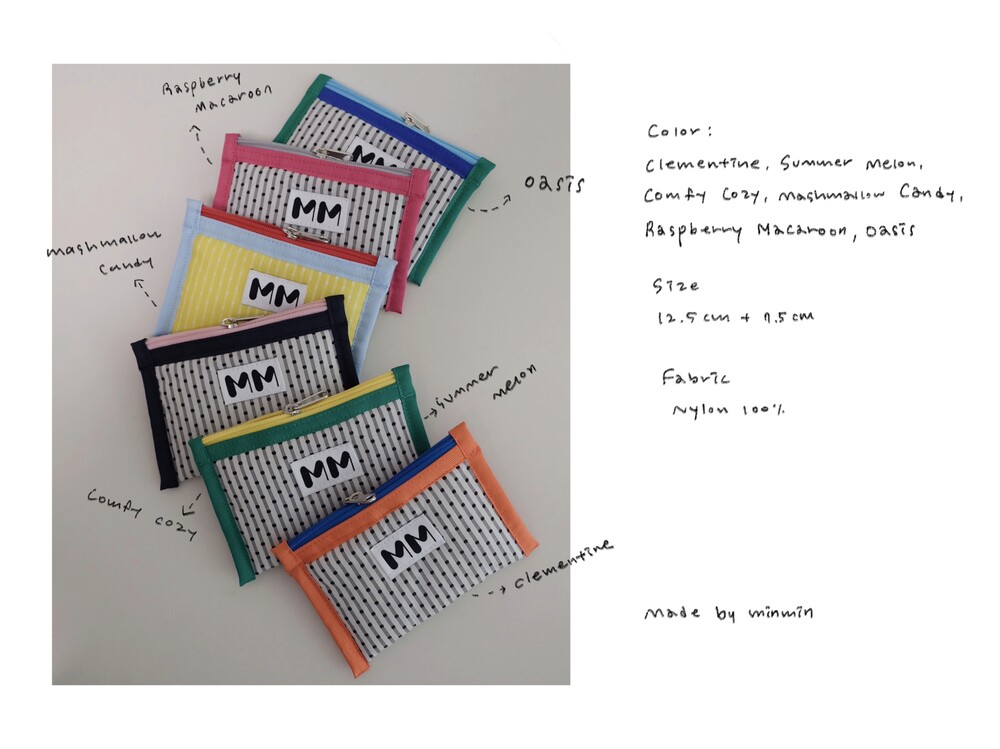 Raspberry
Macaroon
oasis
mashmallow
candy
summer
melon
comfy cozy
clementine
MM
MM
MM
MM
MM
MM
Color:
Clementine, Summer Melon,
Comfy Cozy, mashmallow Candy,
Raspberry Macaroon, oasis
Size
12.5 cm + 7.5 cm
Fabric
Nylon 100%
made by minmin